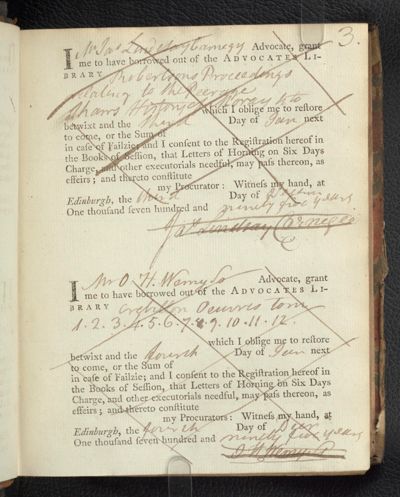 3.
I Mr Jas Lindsay Carnegy Advocate, grant
me to have borrowed out of the ADVOCATES LI-
BRARY Robertsons Proceedings
relating to the Peerage
which I oblige me to restore
betwixt and the third Day of Jan next
to come, or the Sum of
in case of Failzie; and I consent to the Registration hereof in
the Books of Session, that Letters of Horning on Six Days
Charge, and other executorials needful, may pass thereon, as
effeirs; and thereto constitute
my Procurator: Witness my hand, at
Edinburgh, the third Day of
One thousand seven hundred and ninety five years
Jas Lindsay Carnegie
I Mr O. H. Wemyss Advocate, grant
me to have borrowed out of the ADVOCATES LI-
BRARY Crebillon Oeuvres tom
1. 2. 3. 4. 5. 6. 7. 8. 9. 10. 11. 12.
which I oblige me to restore
betwixt and the fourth Day of Jan next
to come, or the Sum of
in case of Failzie; and I consent to the Registration hereof in
the Books of Session, that Letters of Horning on Six Days
Charge, and other executorials needful, may pass thereon, as
effeirs; and thereto constitute
my Procurators: Witness my hand, at
Edinburgh, the fourth Day of Decr
One thousand seven hundred and ninety five years
O H Wemyss